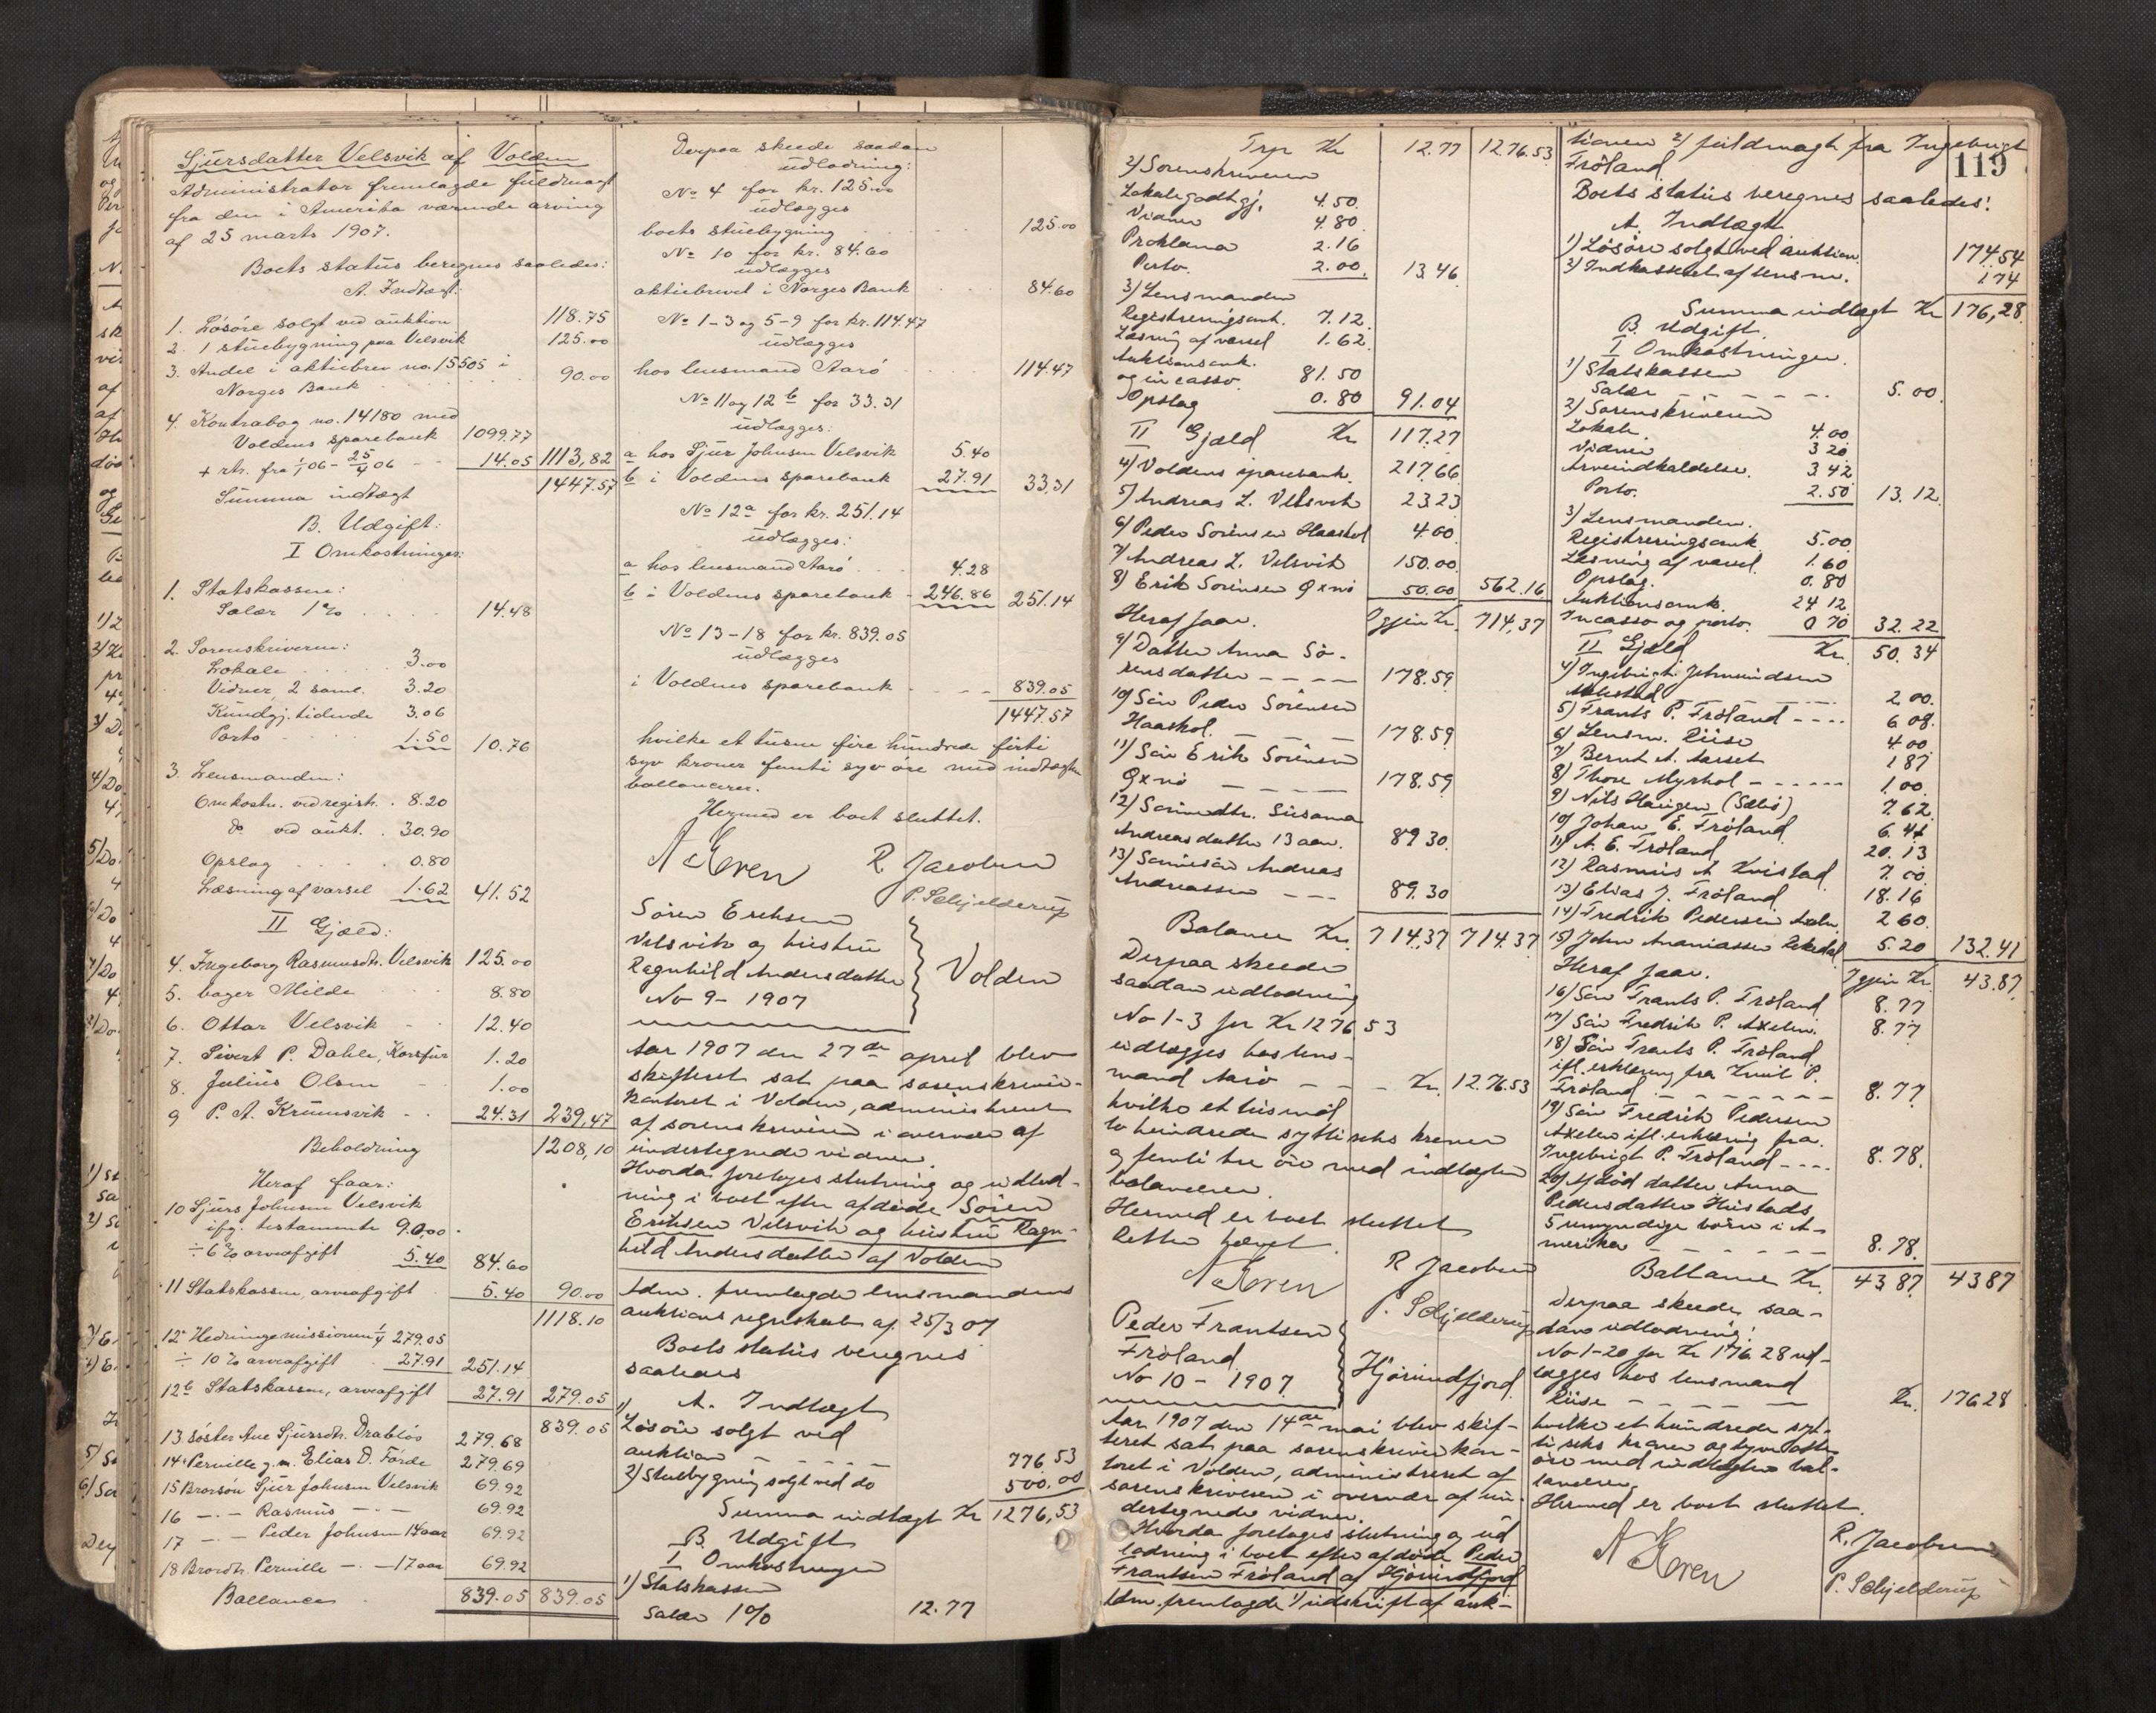 Sjursdatter Velsvik af Volden
Administrator fremlagde fuldmagt
fra den i Amerika værende arving
af 25 marts 1907.
Boets status beregnes saaledes:
A. Indtægt:
1. Løsøre solgt ved auktion 118.75
2. 1 stuebygning paa Velsvik 125.00
3. Andel i aktiebrev no. 15505 i
Norges Bank 90.00
4. Kontrabog no. 14180 med
Voldens sparebank 1099.77
+ rtr. fra 1/1 06 - 25/4 06 14.05 1113,82
Summa indtægt 1447.57
B. Udgift:
I Omkostninger:
1. Statskassen:
Salær 1% 14.48
2. Sorenskriveren:
Lokale 3.00
Vidner, 2 saml. 3.20
Kundgj. tidende 3.06
Porto 1.50 10.76
3. Lensmanden:
Omkostn. ved registr. 8.20
do ved aukt. 30.90
Opslag 0.80
Læsning af varsel 1.62 41.52
II Gjæld:
4. Ingeborg Rasmusdtr. Velsvik 125.00
5. bager Milde 8.80
6. Ottar Velsvik 12.40
7. Sivert P. Dahle, Korsfur 1.20
8. Julius Olsen 1.00
9 P. A. Krumsvik 24.31 239,47
Beholdning 1208,10
Heraf faar:
10 Sjurs Johnsen Velsvik
ifg. testamente 90,00
÷ 6% arveafgift 5.40 84.60
11 Statskassen, arveafgift 5.40 90.00
1118.10
12a Hedningemissionen 1/4 279.05
÷ 10% arveafgift 27.91 251.14
12b Statskassen, arveafgift 27.91 279.05
839.05
13 søster Ane Sjursdtr. Drabløs 279.68
14 Pernille g.m. Elias D. Førde 279.69
15 Brorsøn Sjur Johnsen Velsvik 69.92
16 -"- Rasmus -"- 69.92
17 -"- Peder Johnsen 14 aar 69.92
18 Brordtr. Pernille -"- 17 aar 69.92
Ballance 839.05 839.05
Derpaa skeede saadan
udlodning:
No 4 for kr. 125.00
udlægges
boets stuebygning 125.00
No 10 for kr. 84.60
udlægges
aktiebrevet i Norges Bank 84.60
No 1-3 og 5-9 for kr. 114.47
udlægges
hos lensmand Aarø 114.47
No 11 og 12 b for 33.31
udlægges:
a hos Sjur Johnsen Velsvik 5.40
b i Voldens sparebank 27.91 33,31
No 12a for kr. 251.14
udlægges:
a hos lensmand Aarø 4.28
b i Voldens sparebank 246.86 251.14
No 13-18 for kr. 839.05
udlægges
i Voldens sparebank 839.05
1447.57
hvilke et tusen fire hundrede firti
syv kroner femti syv øre med indtægten
ballancerer.
Hermed er boet sluttet.
N Koren R. Jacobsen
P. Schjelderup
Søren Eriksen
Velsvik og hustru
Ragnhild Andersdatter
No 9 - 1907
Volden
Aar 1907 den 27de april blev
skifteret sat paa sorenskriver-
kontoret i Volden, administreret
af sorenskriveren i overvær af
undertegnede vidner.
Hvorda foretoges slutning og udlod-
ning i boet efter afdøde Søren
Eriksen Velsvik og hustru Ragn-
hild Andersdatter af Volden
Adm. fremlagde lensmandens
auktions regnskab af 25/3 07
Boets status beregnes
saaledes
A. Indtægt
1) Løsøre solgt ved
auktion 776.53
2) Stuebygning solgt ved do 500.00
Summa indtægt Kr 1276,53
B. Udgift
I Omkostninger
1) Statskassen
Salær 1% 12.77
119
Trp Kr 12.77 1276.53
2) Sorenskriveren
Lokalegodtgj. 4.50
Vidner 4.80
Proklama 2.16
Porto. 2.00 13.46
3) Lensmanden
Registreringsomk. 7.12
Læsning af varsel 1.62
Auktionsomk.
og incasso. 81.50
Opslag 0.80 91.04
II Gjæld Kr 117.27
4) Voldens sparebank. 217.66
5) Andreas L. Velsvik 23.23
6) Peder Sørensen Haaskol 4.00
7) Andreas L. Velsvik 150.00
8) Erik Sørensen Øxnø 50.00 562.16
Heraf faar. Igjen Kr. 714,37
9) Datter Anna Sø-
rensdatter 178.59
10) Søn Peder Sørensen
Haaskol. 178.59
11) Søn Erik Sørensen
Øxnø 178.59
12) Sønnedtr. Susanna
Andreasdatter 13 aar. 89.30
13) Sønnesøn Andreas
Andreassen 89.30
Balance Kr. 714.37 714.37
Derpaa skeede
saadan udlodning
No 1-3 for Kr 1276 53
udlægges hos lens-
mand Aarø Kr. 1276.53
hvilke et tusind
to hundrede sytti seks kroner
og femti tre øre med indtægten
balancerer.
Hermed er boet sluttet
Retten hævet.
N Koren R Jacobsen
P. Schjelderup
Peder Frantsen
Frøland
No 10 - 1907
Hjørundfjord
Aar 1907 den 14de mai blev skif-
teret sat paa sorenskriverkon-
toret i Volden, administreret af
sorenskriveren i overvær af un-
dertegnede vidner.
Hvorda foretoges slutning og ud
lodning i boet efter afdøde Peder
Frantsen Frøland af Hjørundfjord
Adm. fremlagde 1/ udskrift af auk-
tionen 2/ fuldmagt fra Ingebrigt
Frøland.
Boets status beregnes saaledes:
A. Indtægt
1) Løsøre solgt ved auktion. 174.54
2) Indkasseret af lensm. 1 74
Summa indtægt Kr 176,28
B. Udgift.
I Omkostninger.
1) Statskassen
Salær 5.00.
2) Sorenskriveren
Lokale. 4.00
Vidner 3 20
Arveindkaldelse. 3 42
Porto. 2.50 13.12
3) Lensmanden.
Registreringsomk. 5.00
Læsning af varsel. 1.60
Opslag. 0.80
Auktionsomk. 24 12
Incasso og porto. 0 70 32.22
II Gjæld Kr. 50.34
4) Ingebrigt Johnsindsen
2 00.
5) Frants P. Frøland 6 08.
6) Lensm. Riise 4 00
7) Bernt A. Aarset 1 87
8) Thore Myrhol 1.00.
9) Nils Haugen (Sæbø) 7.62
10) Johan E. Frøland 6.44
11) A. E. Frøland 20.13
12) Rasmus A Kvistad. 7.00
13) Elias J. Frøland. 18.16
14) Fredrik Pedersen Axeln. 2 60.
15) John Ananiassen 5.20 132.41
Heraf faar. Igjen Kr. 43.87
16) Søn Frants P. Frøland 8.77
17) Søn Fredrik P. Axelen. 8.77
18) Søn Frants P. Frøland
ifl. erklæring fra Knut P.
Frøland 8.77
19) Søn Fredrik Pedersen
Axelen ifl. erklæring fra.
Ingebrigt P. Frøland 8.78.
20) Afdød datter Anna
Pedersdatter Hustads
5 umyndige børn i A-
merika 8.78.
Ballance Kr. 43 87 43 87
Derpaa skeede saa-
dan udlodning:
No 1-20 for Kr 176 28 ud-
lægges hos lensmand
Riise Kr. 176 28
hvilke et hundrede syt-
ti seks kroner og tyve otte
øre med indtægten bal-
lancerer.
Hermed er boet sluttet.
N Koren R. Jacobsen
P. Schjelderup